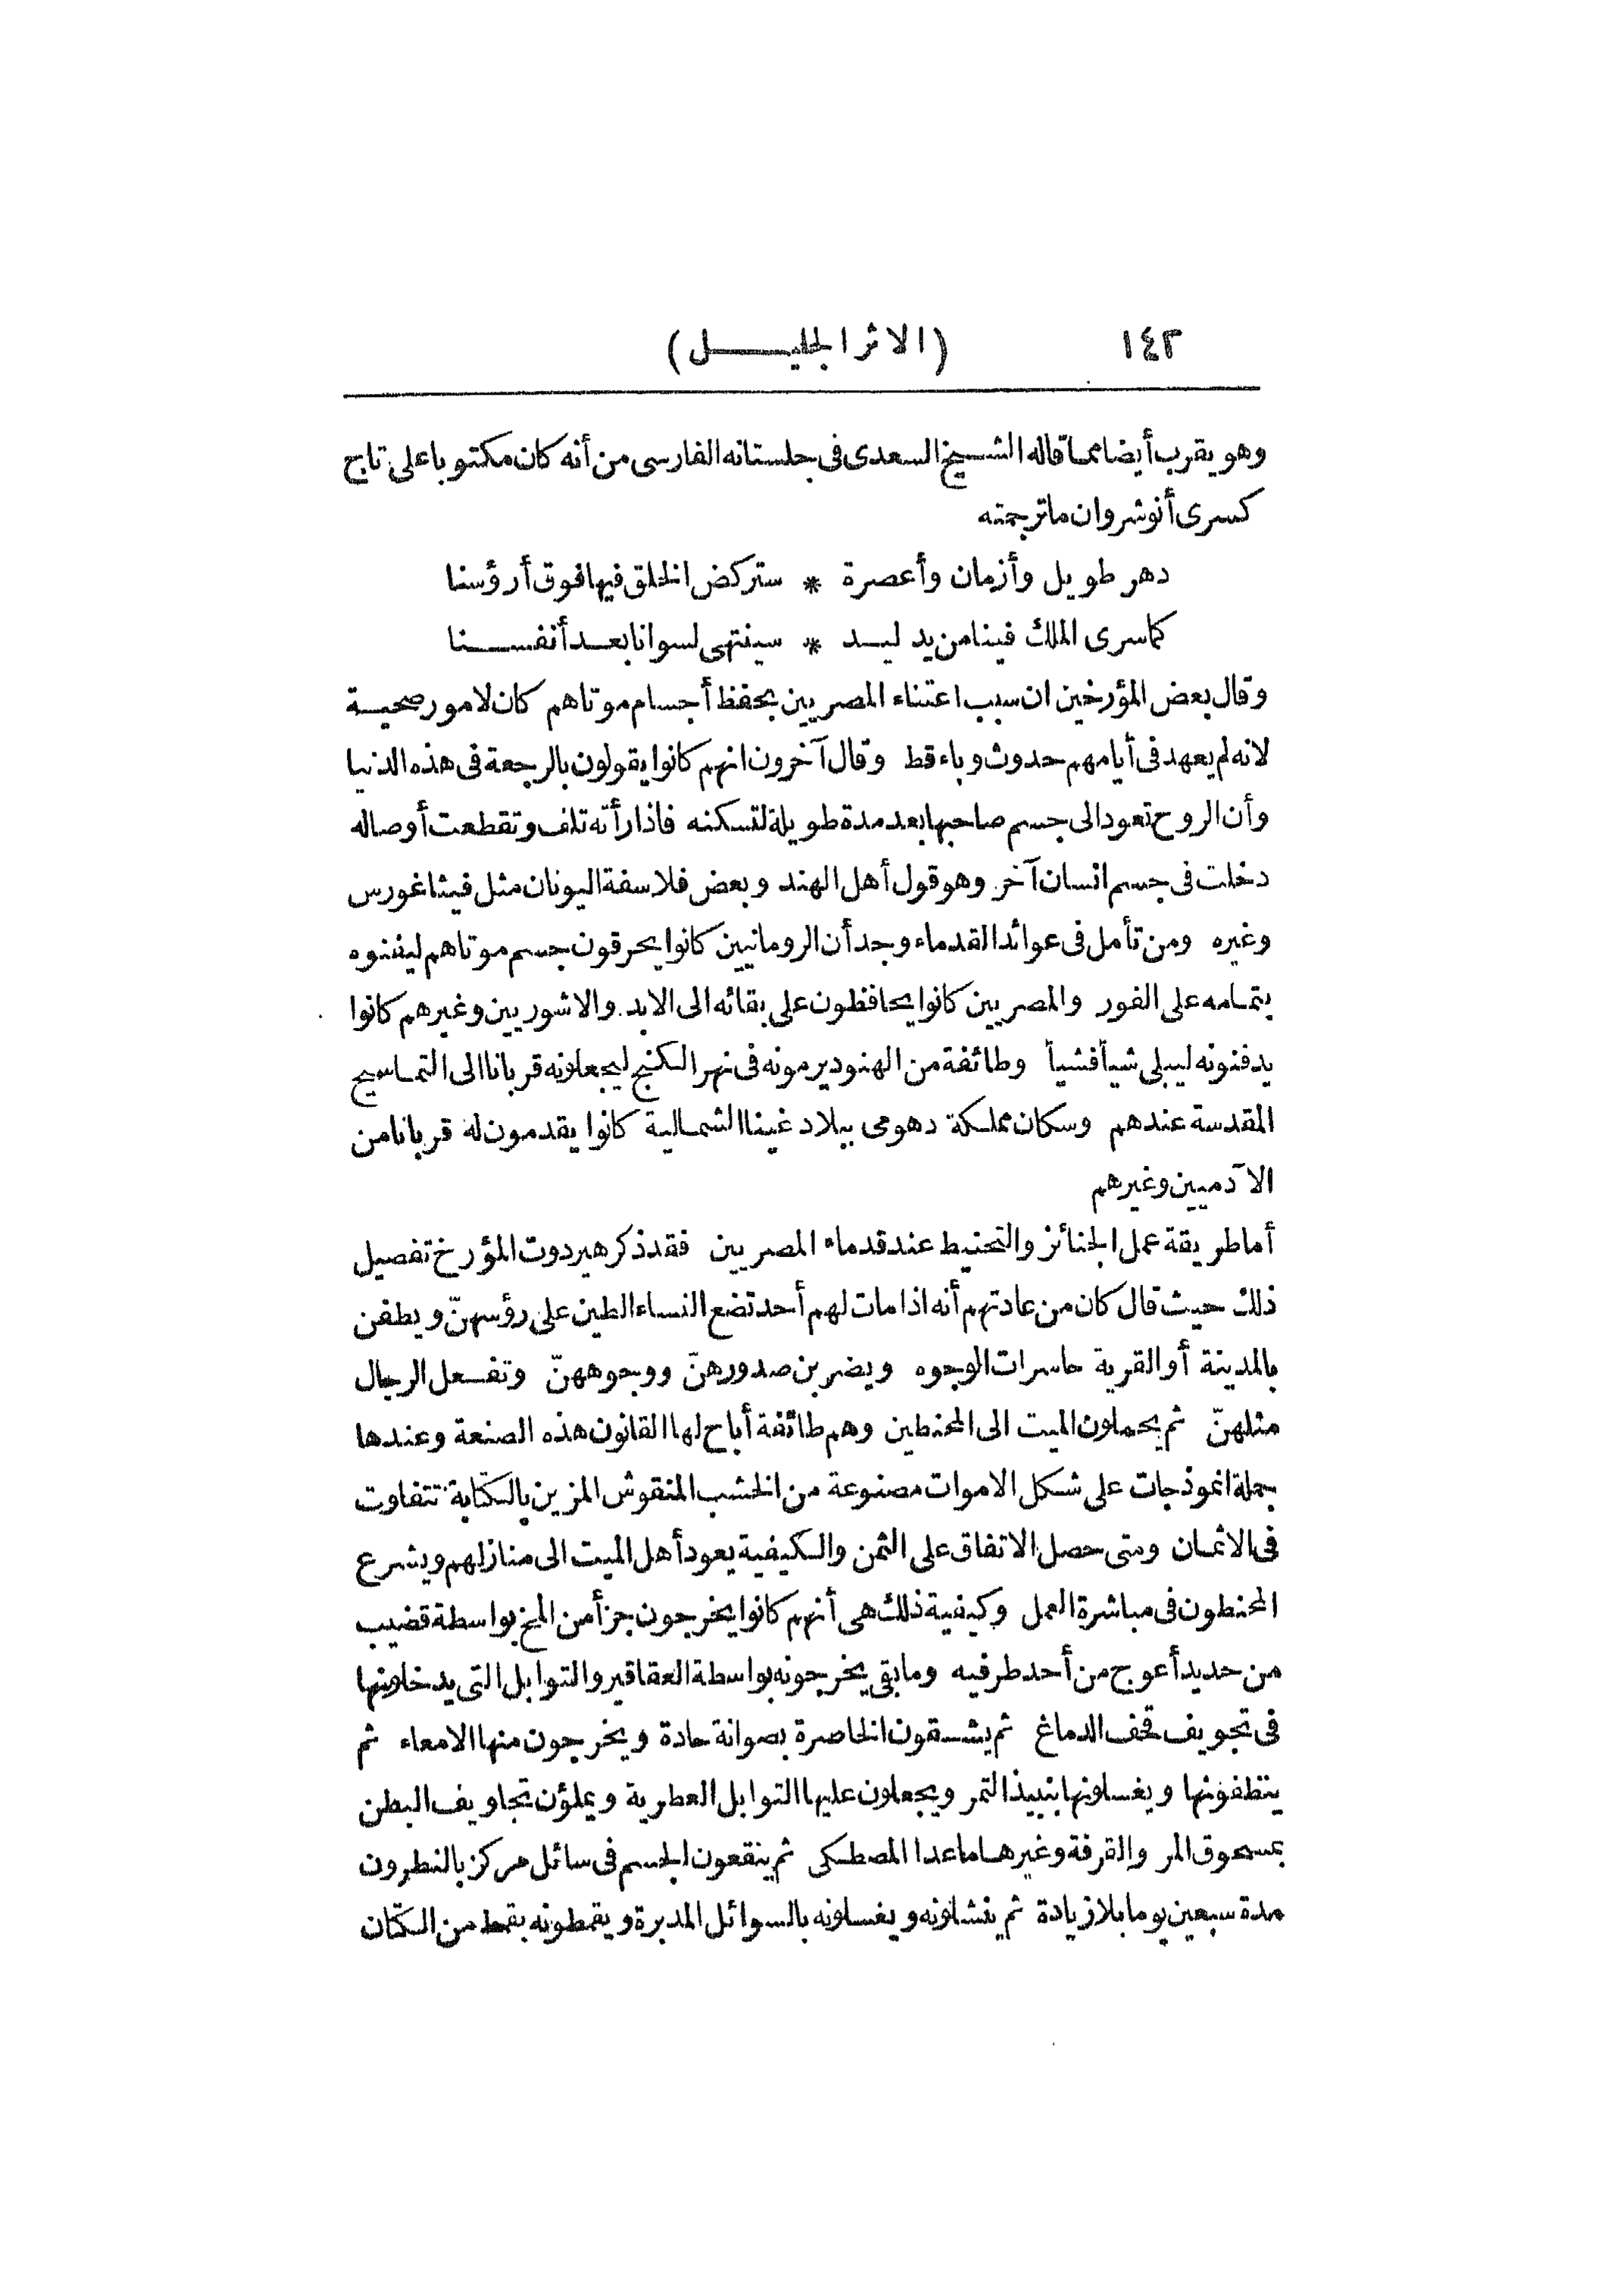 ١٤٢ (الاثر الجليل)
وهو يقرب أيضا مما قاله الشيخ السعدى فى جلستانه الفارسى من أنه كان مكتوبا على تاج
كسرى أنوشروان ما ترجمته
دهر طويل وأزمان وأعصرة * ستركض الخلق فيها فوق أرؤسنا
كما سرى الملك فينا من يد ليد * سينتهى لسوانا بعد أنفسنا
وقال بعض المؤرخين ان سبب اعتناء المصريين بحفظ أجسام موتاهم كان لامور صحية
لانه لم يعهد فى أيامهم حدوث وباء قط وقال آخرون انهم كانوا يقولون بالرجعة فى هذه الدنيا
وأن الروح تعود الى جسم صاحبها بعد مدة طويلة لتسكنه فاذا رأته تلف وتقطعت أوصاله
دخلت فى جسم انسان آخر وهو قول أهل الهند وبعض فلاسفة اليونان مثل فيثاغورس
وغيره ومن تأمل فى عوائد القدماء وجد أن الرومانيين كانوا يحرقون جسم موتاهم ليفنوه
بتمامه على الفور والمصريين كانوا يحافظون على بقائه الى الابد والاشوريين وغيرهم كانوا
يدفنونه ليبلى شيأ فشيأ وطائفة من الهنود يرمونه فى نهر الكنج ليجعلونه قربانا الى التماسيح
المقدسة عندهم وسكان مملكة دهومى ببلاد غينا الشمالية كانوا يقدمون له قربانا من
الآدميين وغيرهم
أما طريقة عمل الجنائز والتحنيط عند قدماء المصريين فقد ذكر هيردوت المؤرخ تفصيل
ذلك حيث قال كان من عادتهم أنه اذا مات لهم أحد تضع النساء الطين على رؤسهنّ ويطفن
بالمدينة أو القرية حاسرات الوجوه ويضربن صدورهنّ ووجوههنّ وتفعل الرجال
مثلهنّ ثم يحملون الميت الى المحنطين وهم طائفة أباح لها القانون هذه الصنعة وعندها
جملة انموذجات على شكل الاموات مصنوعة من الخشب المنقوش المزين بالكتابة تتفاوت
فى الاثمان ومتى حصل الاتفاق على الثمن والكيفية يعود أهل الميت الى منازلهم ويشرع
المحنطون فى مباشرة العمل وكيفية ذلك هى أنهم كانوا يخرجون جزأ من المخ بواسطة قضيب
من حديد أعوج من أحد طرفيه وما بقى يخرجونه بواسطة العقاقير والتوابل التى يدخلونها
فى تجويف قحف الدماغ ثم يشقون الخاصرة بصوانة حادة ويخرجون منها الامعاء ثم
ينظفونها ويغسلونها بنبيذ التمر ويجعلون عليها التوابل العطرية ويملؤن تجاويف البطن
بمسحوق المر والقرفة وغيرها ماعدا المصطكى ثم ينقعون الجسم فى سائل مركز بالنطرون
مدة سبعين يوما بلا زيادة ثم ينشلونه ويغسلونه بالسوائل المدبرة ويقمطونه بقمط من الكتان